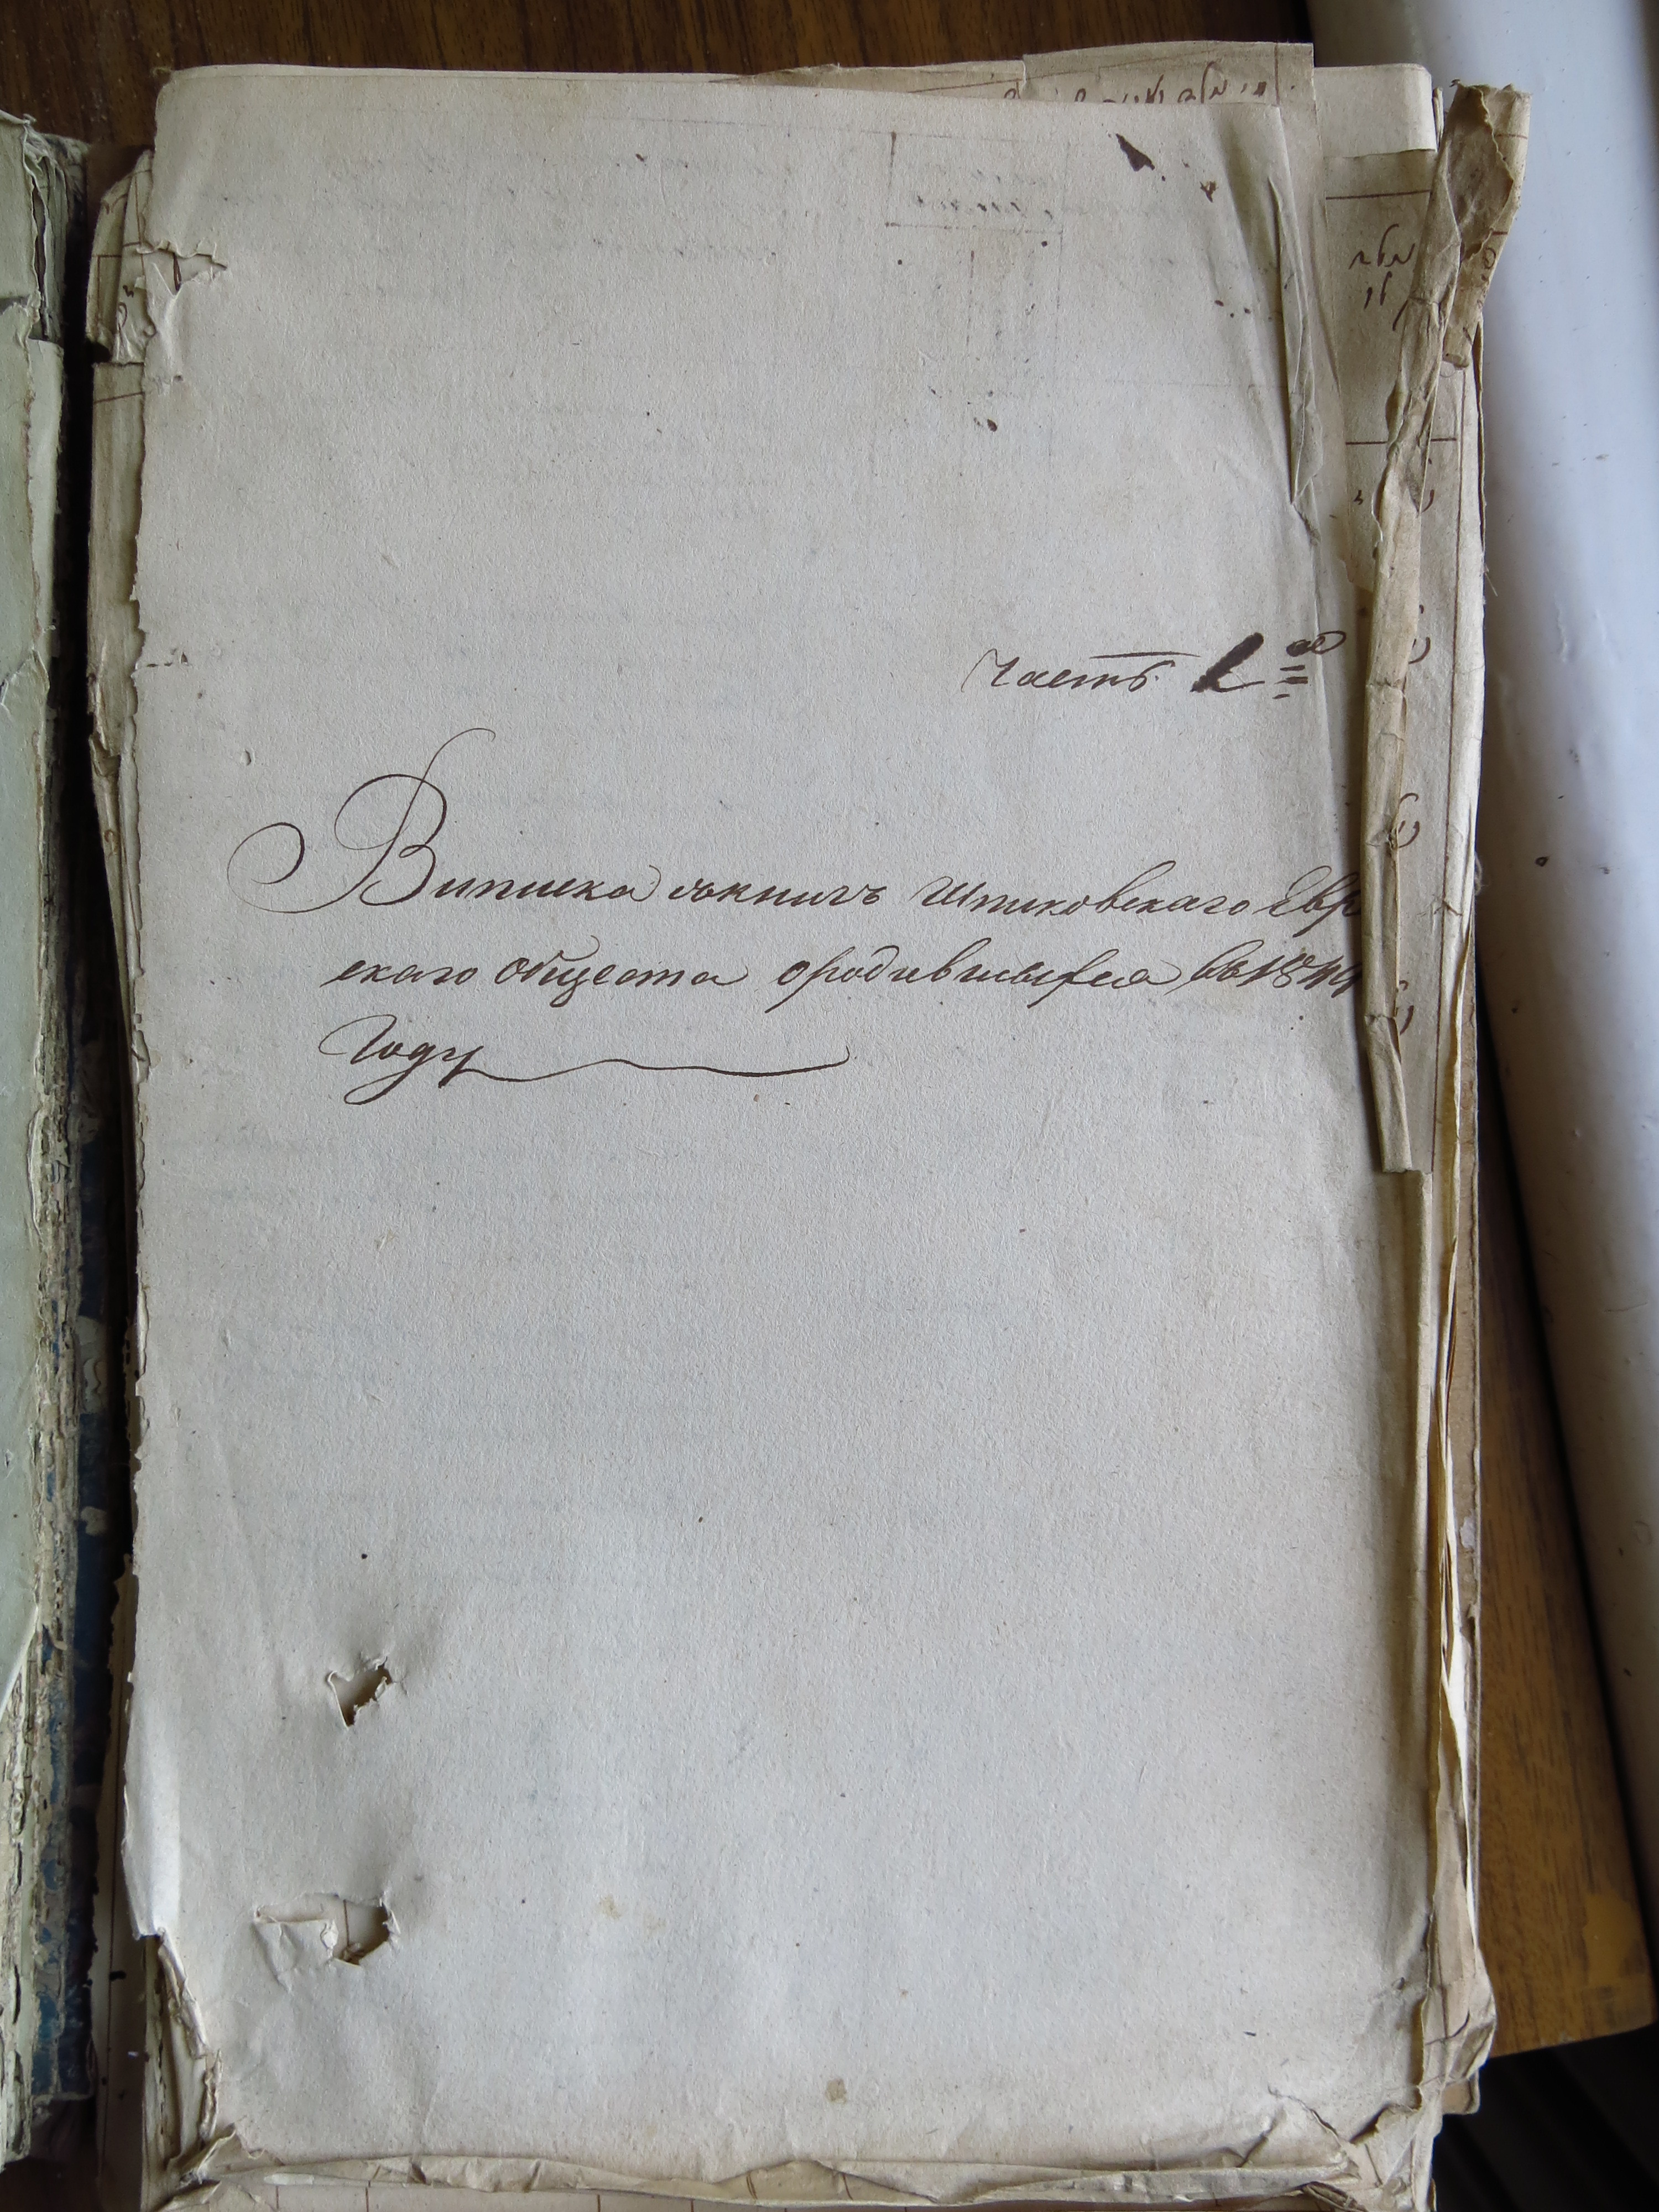 Часть 1ая
Виписка сокнигъ Шпиковскаго Евр
скаго общества ородившыхся въ 1844
Году